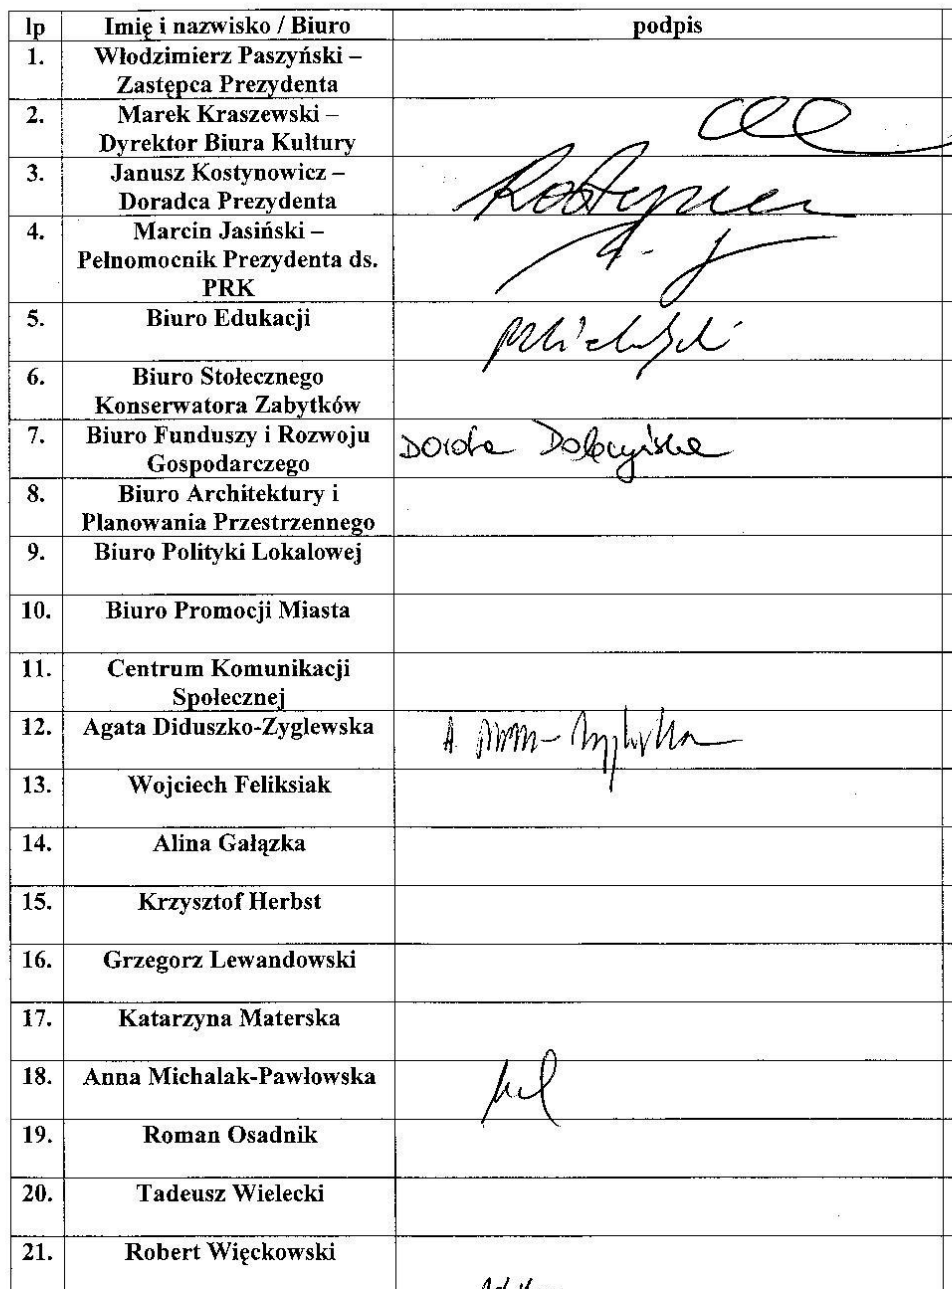 lp Imię i nazwisko / Biuro podpis
1. Włodzimierz Paszyński –
Zastępca Prezydenta
2. Marek Kraszewski –
Dyrektor Biura Kultury
3. Janusz Kostynowicz –
Doradca Prezydenta
4. Marcin Jasiński –
Pełnomocnik Prezydenta ds.
PRK
5. Biuro Edukacji
6. Biuro Stołecznego
Konserwatora Zabytków
7. Biuro Funduszy i Rozwoju Dorota
Gospodarczego
8. Biuro Architektury i
Planowania Przestrzennego
9. Biuro Polityki Lokalowej
10. Biuro Promocji Miasta
11. Centrum Komunikacji
Społecznej
12. Agata Diduszko-Zyglewska
13. Wojciech Feliksiak
14. Alina Gałązka
15. Krzysztof Herbst
16. Grzegorz Lewandowski
17. Katarzyna Materska
18. Anna Michalak-Pawłowska
19. Roman Osadnik
20. Tadeusz Wielecki
21. Robert Więckowski